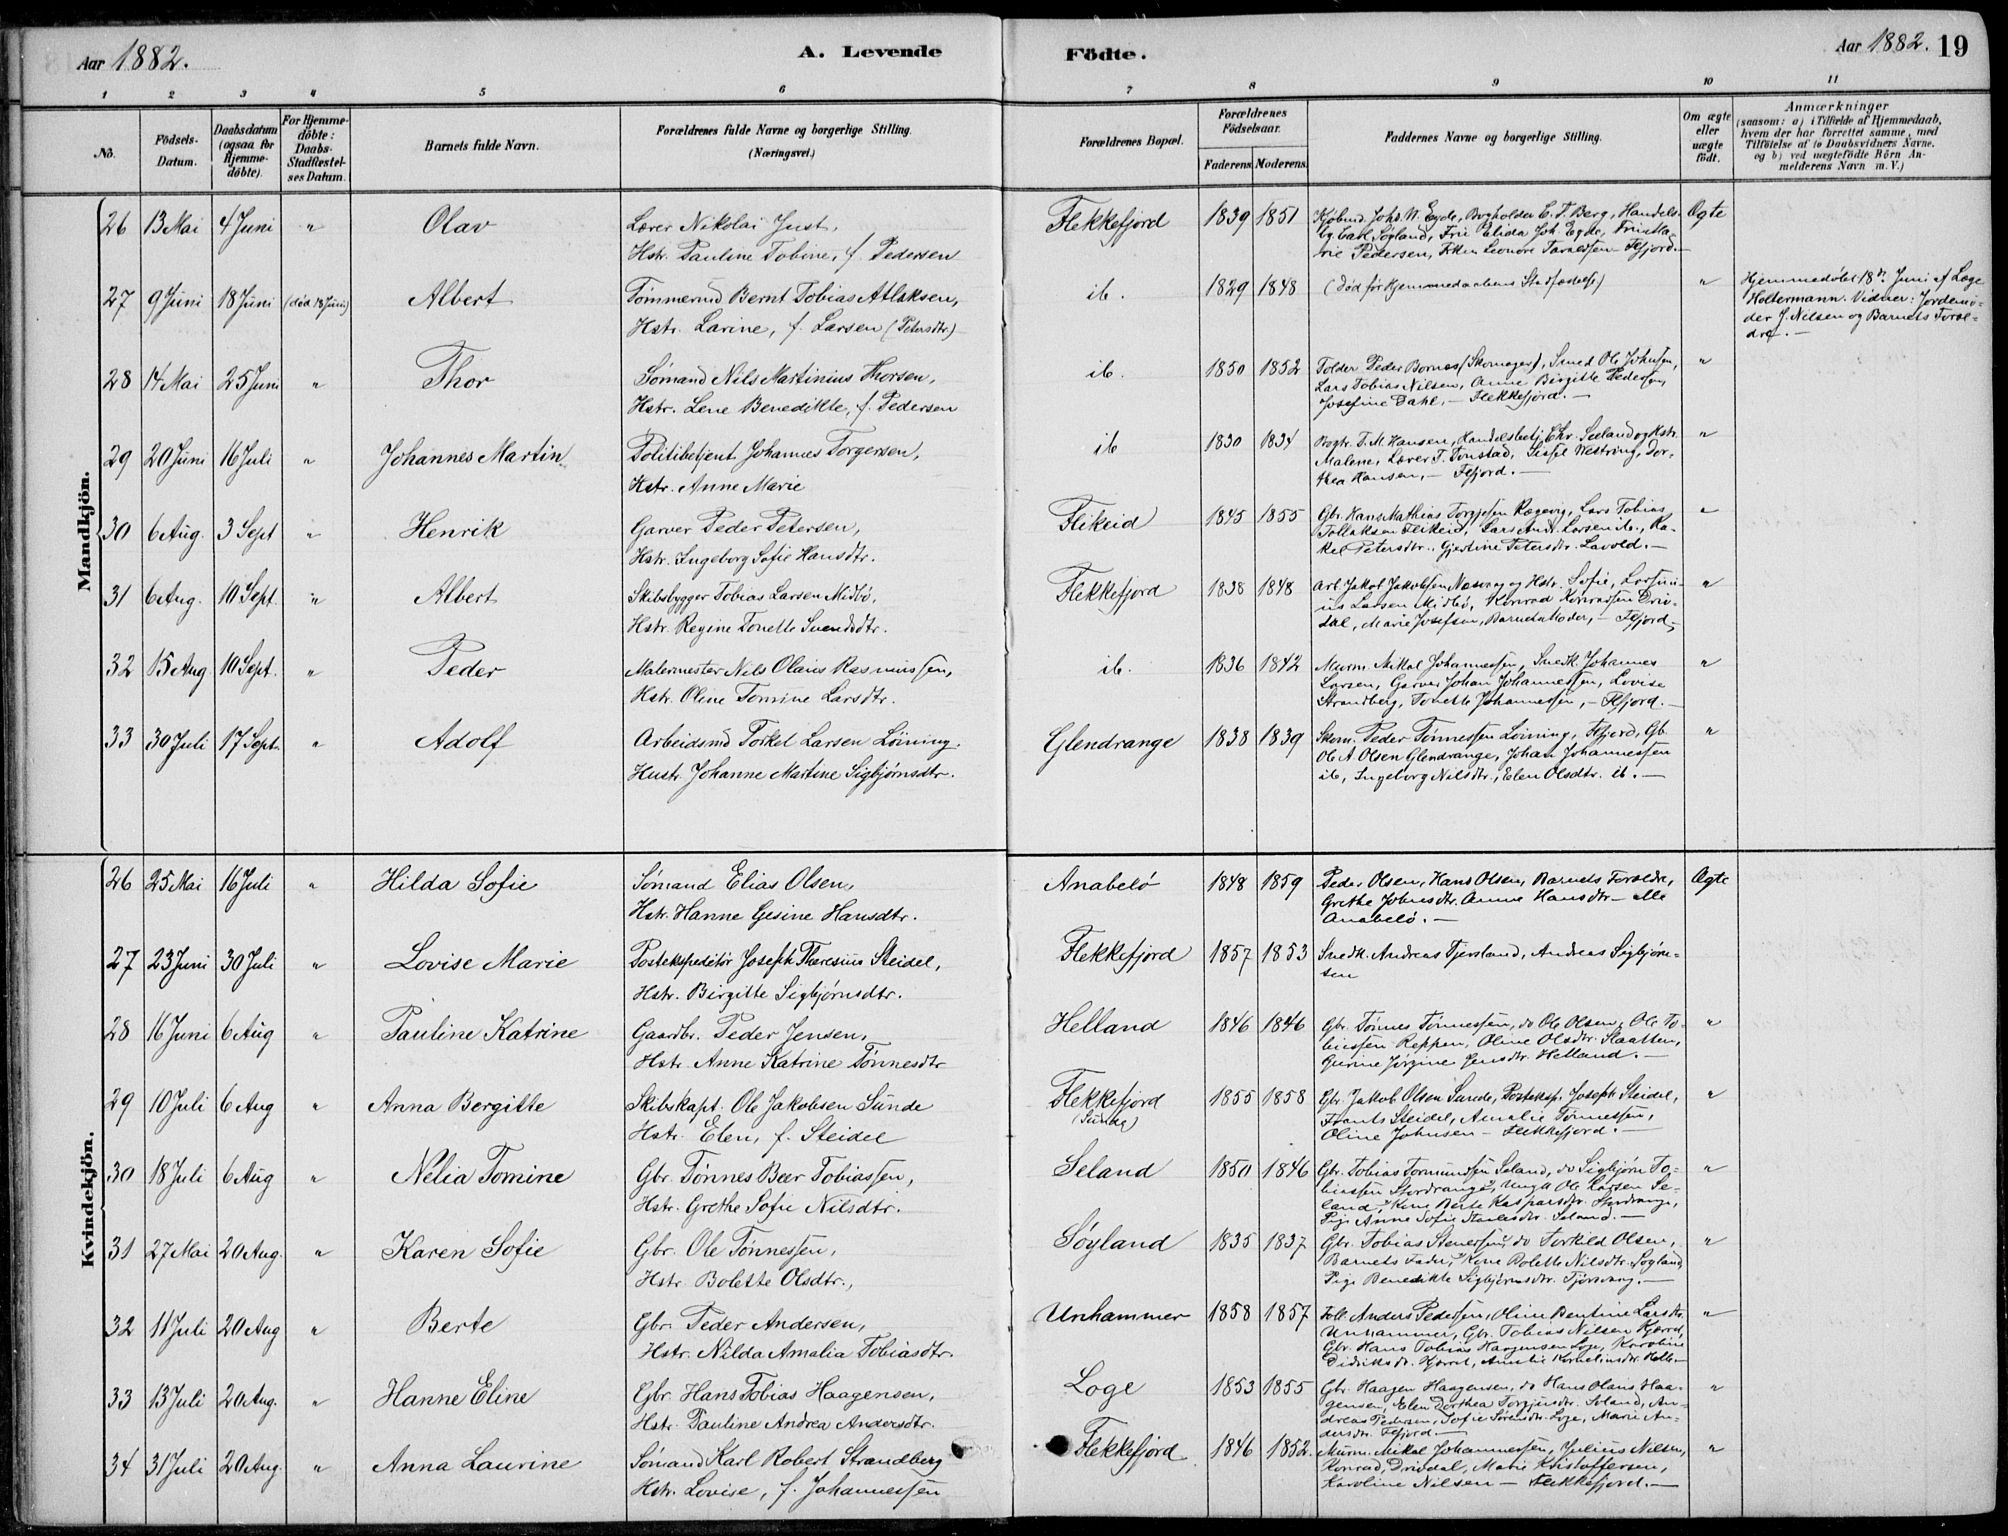 Aar 1882.
A. Levende
Födte.
Aar 1882. 19
1 2 3 4 5 6 7 8 9 10 11
No.
Födsels-Datum.
Daabsdatum (ogsaa for Hjemmedöbte).
For Hjemmedöbte: Daabs-Stadfæstelses Datum.
Barnets fulde Navn.
Forældrenes fulde Navne og borgerlige Stilling. (Næringsvei.)
Forældrenes Bopæl.
Forældrenes Födselsaar.
Faderens. Moderens.
Faddernes Navne og borgerlige Stilling.
Om ægte eller uægte födt.
Anmærkninger
(saasom: a) i Tilfælde af Hjemmedaab,
hvem der har forrettet samme, med
Tilföielse af to Daabsvidners Navne,
og b) ved uægtefödte Börn An-
melderens Navn m. V.)
Mandkjön.
26 13 Mai 4 Juni " Olav Lærer Nikolai Just, Flekkefjord 1839 1851 Kjøbmd. Johs. W. Eyde, Bogholder E. T. Berg, Handels- Ægte
Hstr. Pauline Tobine, f. Pedersen
bg. Carl Søyland, Frue Elida Joh. Eyde, Frue Ma-
rie Pedersen, Frkn Leonore - Ffjord.-
27 9 Juni 18 Juni (død 18 Juni) Albert Tømmermd Bernt Tobias Atlaksen, ib. 1829 1848 (Død før Hjemmedaabens Stadfæstelse) " Hjemmedøbt 18de Juni af Læge
Hstr. Larine, f. Larsen (Petersdtr.)
Holtermann. Vidner: Jordemo-
der J. Nilsen og Barnets Foræl-
dre. -
28 14 Mai 25 Juni " Thor Sømand Nils Martinius Thorsen, ib. 1850 1852 Tolder Peder Bornæs (Skomager), Smed Ole Johnsen, "
Hstr. Lene Benedikte, f. Pedersen
Lars Tobias Nilsen, Anne Birgitte Pedersen,
Josefine Dahl, - Flekkefjord. -
29 20 Juni 16 Juli " Johannes Martin Politibetjent Johannes Torgersen, ib 1830 1834 Bogtr. T. M. Hansen, Handelsbetj. Chr. Seeland og Hstr. "
Hstr. Anne Marie
Malene, Lærer T. Tonstad, Sissel Westring, Dor-
thea Hansen, - Ffjord. -
30 6 Aug. 3 Sept " Henrik Garver Peder Petersen, Flikeid 1845 1855 Gbr. Hans Mathias Torgjesen Rægevig, Lars Tobias "
Hstr. Ingeborg Sofie Hansdtr.
Tollaksen Flikeid, Lars Andr. Larsen ib., Ra-
kel Petersdtr., Gjertine Petersdtr. Lavold. -
31 6 Aug. 10 Sept. " Albert Skibsbygger Tobias Larsen Midbø, Flekkefjord 1838 1848 Arb. Jakob Jakobsen Næsvag og Hstr. Sofie, "
Hstr. Regine Tonette Svendsdtr.
Larsen Midbø, Konrad Konradsen Driv-
dal, Marie Josefsen, Barnets Moder, - Ffjord,
32 15 Aug 10 Sept. " Peder Malermester Nils Olaus Rasmussen, ib. 1836 1842 Murm. Mikal Johannessen, Snedk. Johannes "
Hstr. Oline Tomine Larsdtr.
Larsen, Garver Johan Johannessen, Lovise
Strandberg, Tonette Johannessen, - Ffjord. -
33 30 Juli 17 Sept. " Adolf Arbeidsmd Torkel Larsen Løining. Glendrange 1838 1839 Skom. Peder Tønnessen Løining, Ffjord, Gb. "
Hustr. Johanne Martine Sigbjørnsdtr.
Ole A. Olsen Glendrange, Johan Johannessen
ib, Ingeborg Nilsdtr., Elen Olsdtr. ib. -
Kvindekjön.
26 25 Mai 16 Juli " Hilda Sofie Sømand Elias Olsen, Anabelø 1848 1859 Peder Olsen, Hans Olsen, Barnets Forældre, Ægte
Hstr. Hanne Gesine Hansdtr.
Grethe Johnsdtr. Anne Hansdtr - alle
Anabelø. -
27 23 Juni 30 Juli " Lovise Marie Postekspeditør Joseph Theresius Steidel, Flekkefjord 1857 1853 Snedk. Andreas Tjersland, Andreas Sigbjørn-
Hstr. Birgitte Sigbjørnsdtr.
sen
28 16 Juni 6 Aug " Pauline Katrine Gaardbr. Peder Jensen, Helland 1846 1846 Gbr. Tønnes Tønnessen, do Ole Olsen, Ole To- "
Hstr. Anne Katrine Tønnesdtr
biassen Reppen, Oline Olsdtr. Slaatten,
Gurine Jørgine Jensdtr. Helland. -
29 10 Juli 6 Aug " Anna Bergitte Skibskapt. Ole Jakobsen Sunde Flekkefjord 1855 1858 Gbr. Jakob Olsen Sunde, Posteksp. Joseph Steidel, "
Hstr. Elen, f. Steidel (Sunde)
Frants Steidel, Amalie Tønnessen,
Oline Johnsen - Flekkefjord. -
30 18 Juli 6 Aug " Nelia Tomine Gbr. Tønnes Beer Tobiassen, Seland 1850 1846 Gbr. Tobias Tormundsen Seland, do Sigbjørn To- "
Hstr. Grethe Sofie Nilsdtr.
biassen Stordrange, Ungk Ole Larsen Se-
land, Kone Berte Kaspersdtr. Stordrange,
Pige Anne Sofie Seland. -
31 27 Mai 20 Aug. " Karen Sofie Gbr. Ole Tønnessen, Søyland 1835 1837 Gbr. Tobias Stenersen, do Torkild Olsen, "
Hstr. Bolette Olsdtr.,
Barnets Fader, Kone Bolette Nilsdtr. Søyland,
Pige Benedikte Sigbjørnsdtr. Tjørsvaag. -
32 11 Juli 20 Aug " Berte Gbr. Peder Andersen, Unhammer 1858 1857 Anders Pedersen, Oline Bentine Larsdtr "
Hstr. Nilda Amalia Tobiasdtr.
Unhammer, Gbr. Tobias Nilsen
Gbr. Hans Tobias Haagensen Loge, Karoline
Didriksdr.
33 13 Juli 20 Aug. " Hanne Eline Gbr. Hans Tobias Haagensen, Loge 1853 1855 Gbr. Haagen Haagensen, do Hans Olaus Haa- "
Hstr. Pauline Andrea Andersdtr.
gensen, Elen Dorthea Torgjusdtr. Seland, An-
dreas Pedersen, Sofie Sørensdtr. Loge, Marie An-
dersdtr. Ffjord -
34 31 Juli 20 Aug. " Anna Laurine Sømand Karl Robert Strandberg Flekkefjord 1846 1852. Murm. Mikal Johannessen, Julius Nilsen, "
Hstr. Lovise, f. Johannessen
Konrad, Drivdal, Marie Kristoffersen,
Karoline Nilsen - Flekkefjord. -